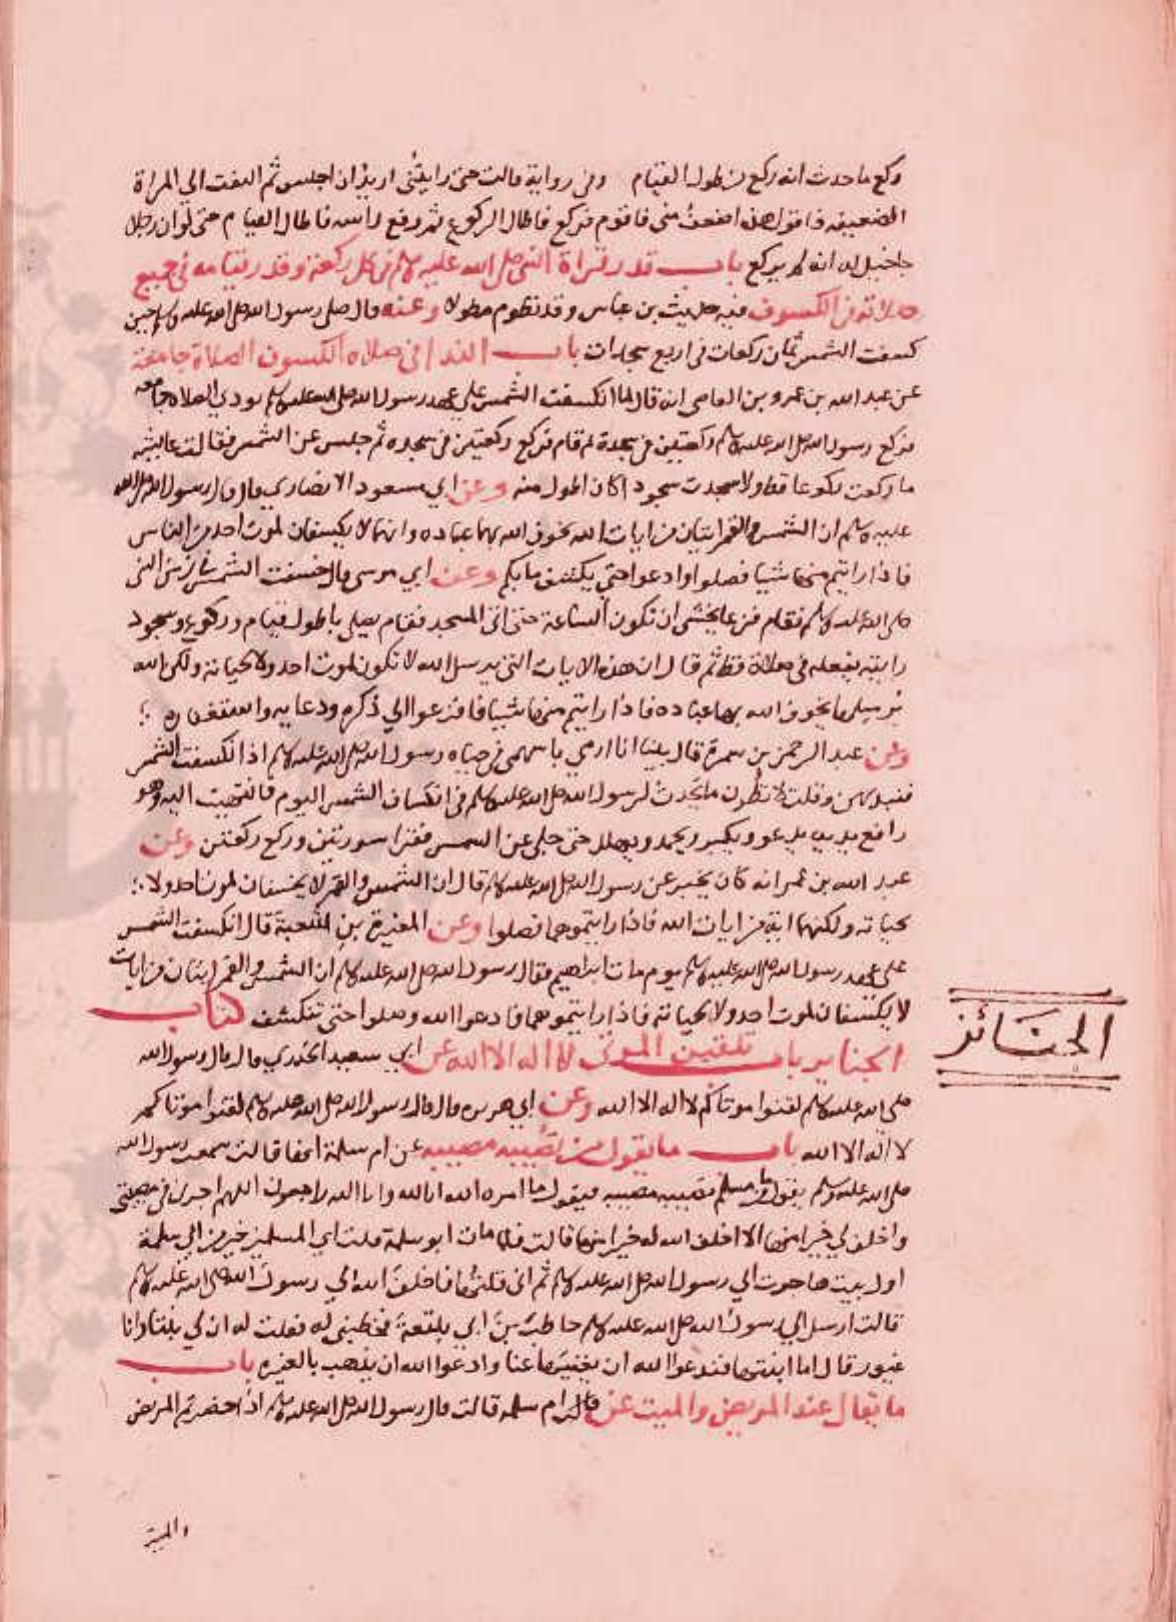 ركع ما حدث انه ركع من طول القيام وفي رواية قالت حتى رايتني اريد ان اجلس ثم التفت الى المراة
الضعيفه فاقول هذه اضعف مني فاقوم فركع فاطال الركوع ثم رفع راسه فاطال القيام حتى لو ان رجلا
جا خيل له انه لم يركع باب قدر قراة النبي صلى الله عليه وسلم في كل ركعة وقدر قيامه في جميع
صلاته في الكسوف فيه حديث بن عباس وقد تقدم مطولا وعنه قال صلى رسول الله صلى الله عليه وسلم حين
كسفت الشمس ثمان ركعات في اربع سجدات باب الندا في صلاه الكسوف الصلاة جامعة
عن عبد الله بن عمرو بن العاصي انه قال لما انكسفت الشمس على عهد رسول الله صلى الله عليه وسلم نودي الصلاه جامعه
فركع رسول الله صلى الله عليه وسلم ركعتين في سجدة ثم قام فركع ركعتين في سجده ثم جلس عن الشمس فقالت عايشه
ما ركعت ركوعا قط ولا سجدت سجودا كان اطول منه وعن ابي مسعود الانصاري قال قال رسول الله صلى الله
عليه وسلم ان الشمس والقمر ايتان من ايات الله يخوف الله بهما عباده وانهما لا يكسفان لموت احد من الناس
فاذا رايتم منها شيا فصلوا وادعوا حتى يكشف ما بكم وعن ابي موسى قال خسفت الشمس في زمن النبي
صلى الله عليه وسلم فقام فزعا يخشى ان تكون الساعة حتى اتى المسجد فقام يصلي باطول قيام وركوع وسجود
رايته يفعله في صلاة قط ثم قال ان هذه الايات التي يرسل الله لا تكون لموت احد ولا لحياته ولكن الله
يرسلها يخوف الله بها عباده فاذا رايتم منها شيا فافزعوا الى ذكره ودعايه واستغفاره
وعن عبد الرحمن بن سمرة قال بينا انا ارمي باسهمي في حياه رسول الله صلى الله عليه وسلم اذ انكسفت الشمس
فنبذتهن وقلت لانظرن ما يحدث لرسول الله صلى الله عليه وسلم في انكساف الشمس اليوم فانتهيت اليه وهو
رافع يديه يدعو ويكبر ويحمد ويهلل حتى جلى عن الشمس فقرا سورتين وركع ركعتين وعن
عبد الله بن عمر انه كان يخبر عن رسول الله صلى الله عليه وسلم قال ان الشمس والقمر لا يخسفان لموت احد ولا
لحياته ولكنهما اية من ايات الله فاذا رايتموهما فصلوا وعن المغيرة بن شعبة قال انكسفت الشمس
على عهد رسول الله صلى الله عليه وسلم يوم مات ابراهيم فقال رسول الله صلى الله عليه وسلم ان الشمس والقمر ايتان من ايات
لا يكسفان لموت احد ولا لحياته فاذا رايتموهما فادعوا الله وصلوا حتى تنكشف كتاب
الجنايز باب تلقين الموتى لا اله الا الله عن ابي سعيد الخدري قال قال رسول الله
صلى الله عليه وسلم لقنوا موتاكم لا اله الا الله وعن ابي هريره قال قال رسول الله صلى الله عليه وسلم لقنوا موتاكم
لا اله الا الله باب ما يقول من تصيبه مصيبه عن ام سلمة انها قالت سمعت رسول الله
صلى الله عليه وسلم يقول ما من مسلم تصيبه مصيبه فيقول ما امره الله انا لله وانا اليه راجعون اللهم اجرني في مصيبتي
واخلف لي خيرا منها الا اخلف الله له خيرا منها قالت فلما مات ابو سلمة قلت اي المسلمين خير من ابي سلمة
اول بيت هاجرت الى رسول الله صلى الله عليه وسلم ثم اني قلتها فاخلف الله لي رسول الله صلى الله عليه وسلم
قالت ارسل الي رسول الله صلى الله عليه وسلم حاطب بن ابي بلتعة يخطبني له فقلت له ان لي بنتا وانا
غيور قال اما ابنتها فندعوا الله ان يغنيها عنا وادعوا الله ان يذهب بالغيره باب
ما يقال عند المريض والميت عن ام سلمه قالت قال رسول الله صلى الله عليه وسلم اذا حضرتم المريض
والميت
الجنائز